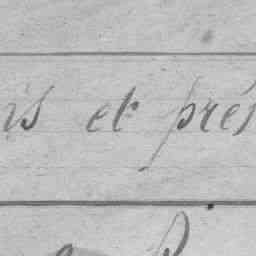 is et prés